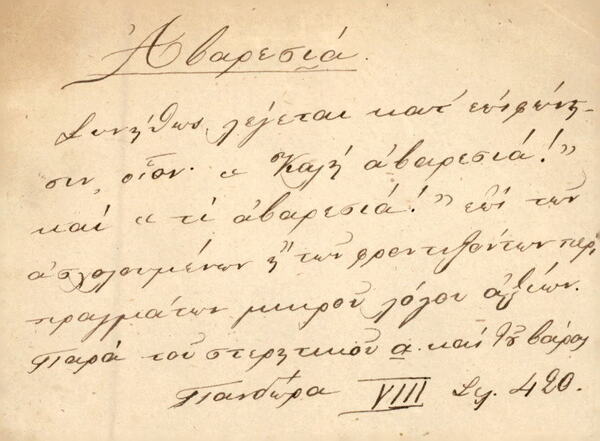 Ἀβαρεσιά.
Συνήθως λέγεται κατ' ἐπιφώνη-
σιν, οἷον. « Καλὴ ἀβαρεσιά! »
καὶ « τί ἀβαρεσιά! » ἐπὶ τῶν
ἀσχολουμένων ἢ τῶν φροντιζόντων περὶ
πραγμάτων μικροῦ λόγου ἀξίων.
Παρὰ τοῦ στερητικοῦ α. καὶ τοῦ βάρος
Πανδώρα VIII Σελ. 420.